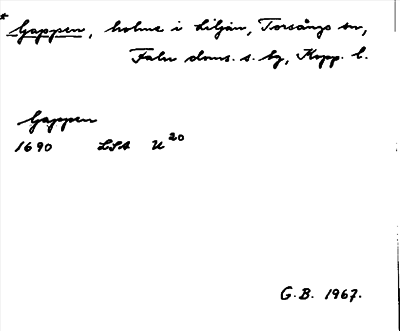 * Gappen, holme i Liljån, Torsångs sn,
Falu doms. s. bg, Kopp. l.
Gappen
1690 LSA U 20
G.B. 1967.